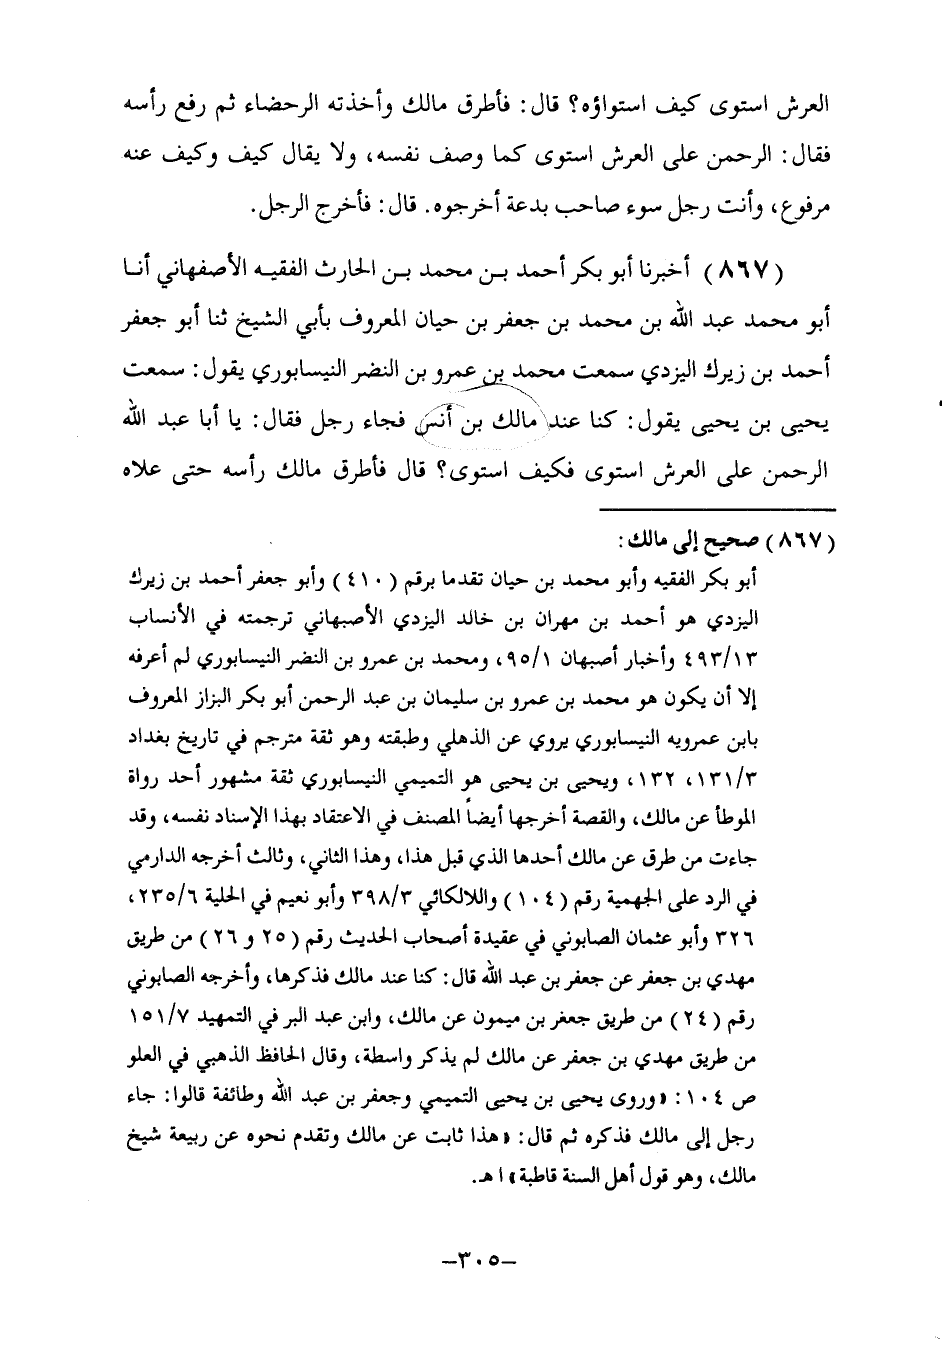 العرش استوى كيف استواؤه؟ قال: فأطرق مالك وأخذته الرحضاء ثم رفع رأسه
فقال: الرحمن على العرش استوى كما وصف نفسه، ولا يقال كيف وكيف عنه
مرفوع، وأنت رجل سوء صاحب بدعة أخرجوه. قال: فأخرج الرجل.
(٨٦٧) أخبرنا أبو بكر أحمد بن محمد بن الحارث الفقيه الأصفهاني أنا
أبو محمد عبد الله بن محمد بن جعفر بن حيان المعروف بأبي الشيخ ثنا أبو جعفر
أحمد بن زيرك اليزدي سمعت محمد بن عمرو بن النضر النيسابوري يقول: سمعت
يحيى بن يحيى يقول: كنا عند مالك بن أنس فجاء رجل فقال: يا أبا عبد الله
الرحمن على العرش استوى فكيف استوى؟ قال فأطرق مالك رأسه حتى علاه
(٨٦٧) صحيح إلى مالك:
أبو بكر الفقيه وأبو محمد بن حيان تقدما برقم (٤١٠) وأبو جعفر أحمد بن زيرك
اليزدي هو أحمد بن مهران بن خالد اليزدي الأصبهاني ترجمته في الأنساب
٤٩٣/١٣ وأخبار أصبهان ٩٥/١، ومحمد بن عمرو بن النضر النيسابوري لم أعرفه
إلا أن يكون هو محمد بن عمرو بن سليمان بن عبد الرحمن أبو بكر البزاز المعروف
بابن عمرويه النيسابوري يروي عن الذهلي وطبقته وهو ثقة مترجم في تاريخ بغداد
١٣١/٣، ١٣٢، ويحيى بن يحيى هو التميمي النيسابوري ثقة مشهور أحد رواة
الموطأ عن مالك، والقصة أخرجها أيضاً المصنف في الاعتقاد بهذا الإسناد نفسه، وقد
جاءت من طرق عن مالك أحدها الذي قبل هذا، وهذا الثاني، وثالث أخرجه الدارمي
في الرد على الجهمية رقم (١٠٤) واللالكائي ٣٩٨/٣ وأبو نعيم في الحلية ٢٣٥/٦،
٣٢٦ وأبو عثمان الصابوني في عقيدة أصحاب الحديث رقم (٢٥ و ٢٦) من طريق
مهدي بن جعفر عن جعفر بن عبد الله قال: كنا عند مالك فذكرها، وأخرجه الصابوني
رقم (٢٤) من طريق جعفر بن ميمون عن مالك، وابن عبد البر في التمهيد ١٥١/٧
من طريق مهدي بن جعفر عن مالك لم يذكر واسطة، وقال الحافظ الذهبي في العلو
ص ١٠٤: «وروى يحيى بن يحيى التميمي وجعفر بن عبد الله وطائفة قالوا: جاء
رجل إلى مالك فذكره ثم قال: «هذا ثابت عن مالك وتقدم نحوه عن ربيعة شيخ
مالك، وهو قول أهل السنة قاطبة» ا هـ.
–٣٠٥–